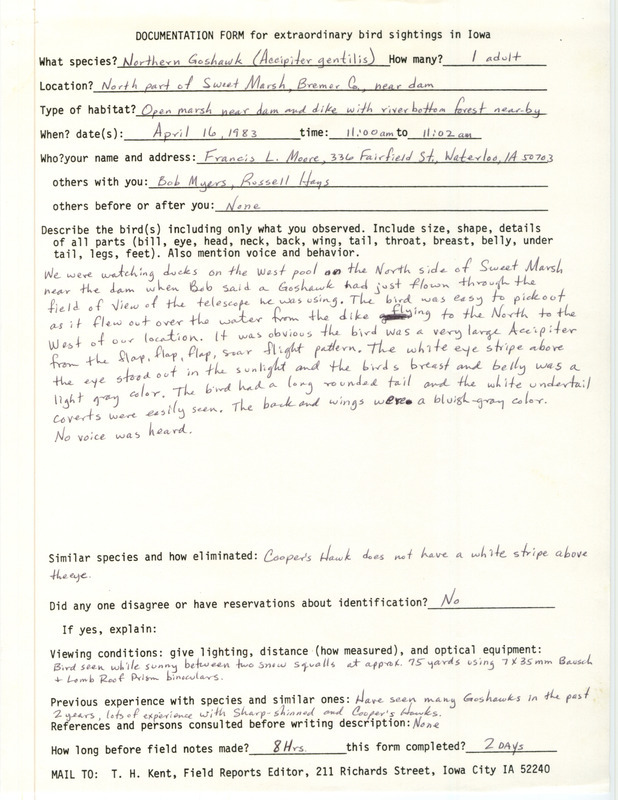 DOCUMENTATION FORM for extraordinary bird sightings in Iowa
What species? Northern Goshawk (Accipiter gentilis) How many? 1 adult
Location? North part of Sweet Marsh, Bremer Co., near dam
Type of habitat? Open marsh near dam and dike with riverbottom forest near-by
When? date(s): April 16, 1983 time: 11:00am to 11:02am
Who?your name and address: Francis L. Moore, 336 Fairfield St., Waterloo, IA 50703
others with you: Bob Myers, Russell Hays
others before or after you: None
Describe the bird(s) including only what you observed. Include size, shape, details
of all parts (bill, eye, head, neck, back, wing, tail, throat, breast, belly, under
tail, legs, feet). Also mention voice and behavior.
We were watching ducks on the West pool on the North side of Sweet Marsh
near the dam when Bob said a Goshawk had just flown through the
field of view of the telescope he was using. The bird was easy to pick out
as it flew out over the water from the dike flying to the North to the
West of our location. It was obvious the bird was a very large Accipiter
from the flap, flap, flap, soar flight pattern. The white eye stripe above
the eye stood out in the sunlight and the birds breast and belly was a
light gray color. The bird had a long rounded tail and the white undertail
coverts were easily seen. The back and wings were a bluish-gray color.
No voice was heard.
Similar species and how eliminated: Cooper's Hawk does not have a white stripe above
the eye.
Did any one disagree or have reservations about identification? No
If yes, explain:
Viewing conditions: give lighting, distance (how measured), and optical equipment:
Bird seen while sunny between two snow squalls at approx. 75 yards using 7X35mm Bausch
+ Lomb Roof Prism binoculars.
Previous experience with species and similar ones: Have seen many Goshawks in the past
2 years, lots of experience with Sharp-shinned and Cooper's Hawks.
References and persons consulted before writing description: None
How long before field notes made? 8 Hrs. this form completed? 2 DAYS
MAIL TO: T. H. Kent, Field Reports Editor, 211 Richards Street, Iowa City IA 52240